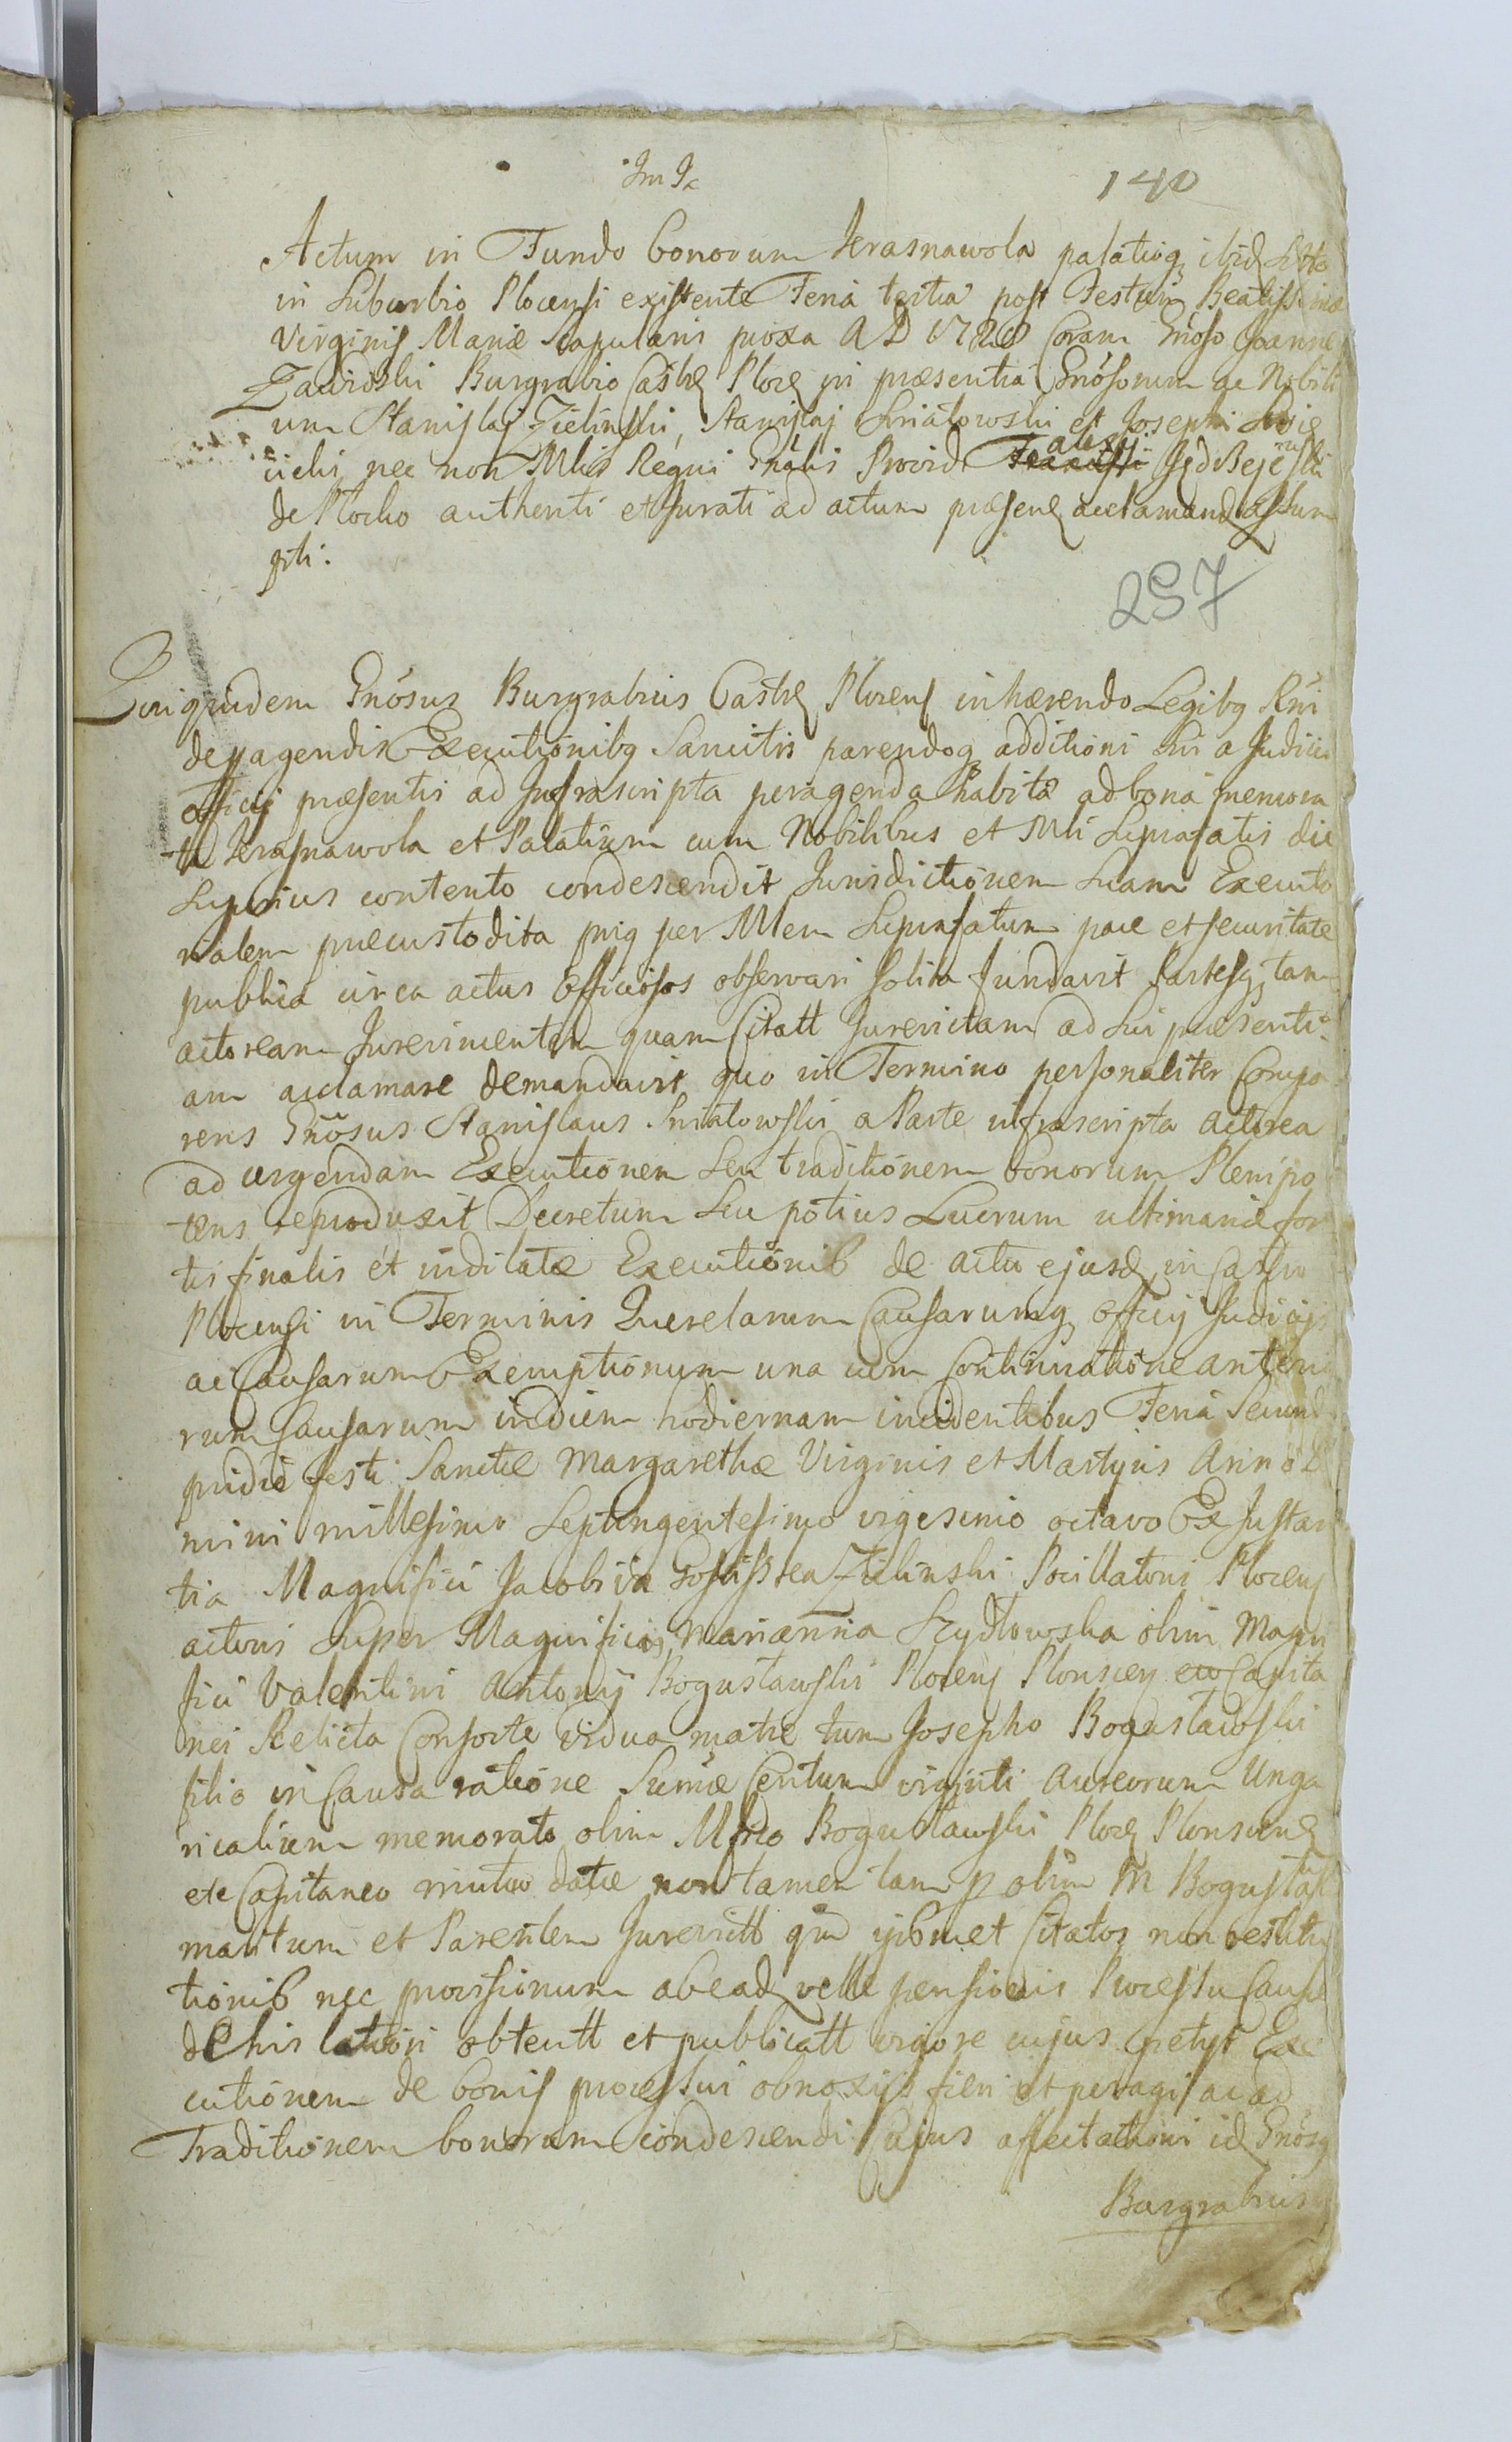 140
Actum in Fundo bonorum Krasnawola palatioq ibid sito
in Suburbio Plocensi existente Feria tertia post Festum Beatissimæ
Virginis Mariæ Scapularis proxa A D 1728 Coram Gnoso Joanne
Zawidzki Burgrabio Castr Ploc in præsentia Gnosorum ac Nobili
um Stanislaj Zielinski, Stanislaj Sniatowski et Josephi
nec non Mlis Regni Gnalis Provid
de Plocko authenti et jurati ad actum præsens acclamand assum
pti.
297
Quiquidem Gnosus Burgrabius Castr Plocens inhærendo Legibq Rni
de peragendis Executionibq Sancitis parendoq additioni sui a Judicio
officij præsentis ad Infrascripta peragenda habitæ ad bona memora
ta Krasnawola et Palatium cum Nobilibus et Mli Suprafatis die
Superius contento condescendit Jurisdictionem Suam Executo
rialem præcustodita priq per Mlem Suprafatum pace et securitate
publica circa actus officiosos observari solita fundavit Partesq tam
actoream Jurevincentem quam Citatt Jurevictam ad sui præsenti
am acclamare demandavit quo in Termino personaliter Compa
rens Gnosus Stanislaus Sniatowski a Parte infrascripta actorea
ad urgendam Executionem Seu traditionem bonorum Plenipo
tens reproduxit Decretum Seu potius Lucrum ultimariæ for
tis finalis et indilatæ Executionis de actu ejusd in Castro
Plocensi in Terminis Querelarum Causarumq officij Judicijs
ac Causarum Exemptionum una cum Continuatione anterio
rum Causarum in diem hodiernam incidentibus Feria Secund
pridie festi Sanctæ Margarethæ Virginis et Martyris Anno D
mini millesimo Septingentesimo vigesimo octavo Ex Instan
tia Magnifici Jacobi in Zielinski Pocillatoris Plocens
actoris Super Magnificis Marianna Szydłowska olim Magni
fici Valentini Antonij Bogusławski Plocens Plonscen Capita
nei Relicta Consorte vidua matre tum Josepho Bogusławski
filio in Causa ratione Summæ Centum viginti Aureorum Unga
ricalium memorato olim Mfico Bogusławski Ploc Plonscens
etc Capitaneo mutuo datæ non tamen tam p olim M Bogusławs
maritum et Parentem Jurevictt qm ipsmet Citatos non restitu
tionis nec provisionum ab ead velle pensionis Processu Causæ
de his latiori obtentt et publicatt vigore cujus petijt Exe
cutionem de bonis processui obnoxijs fieri et peragi ac ad
Traditionem bonorum condescendi Cujus affectationi id Gnosq
Burgrabius